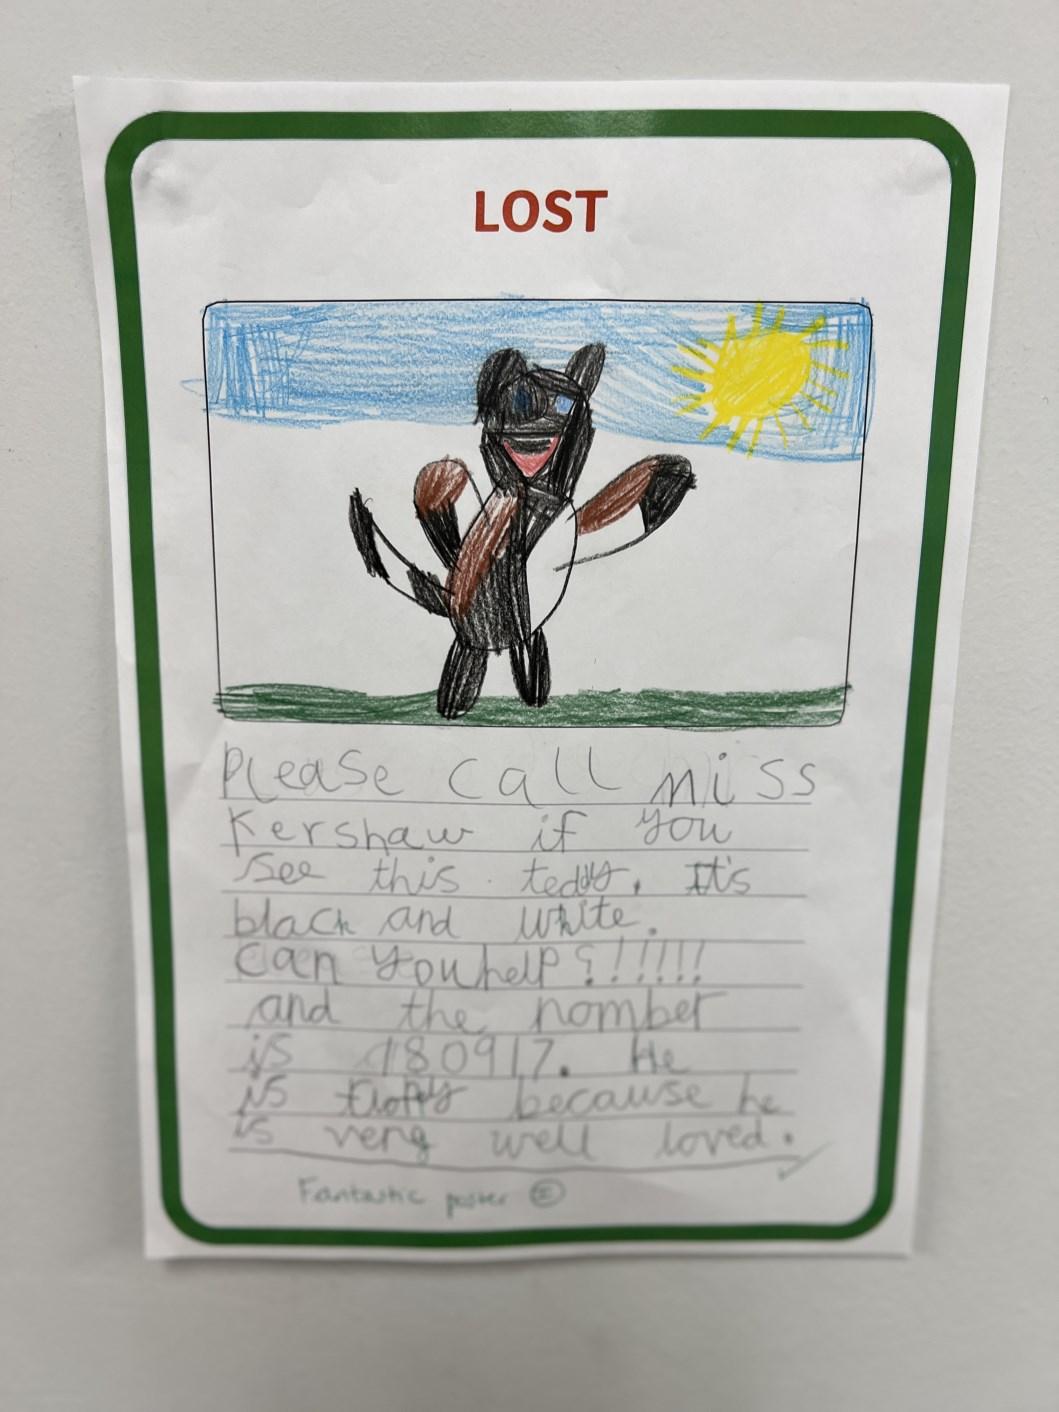 LOST
Please call miss
Kershaw if you
see this teddy. It's
black and white.
can you help ?!!!!!!
and the nomber
is 180917. He
is because he
is very well loved.
Fantastic poster